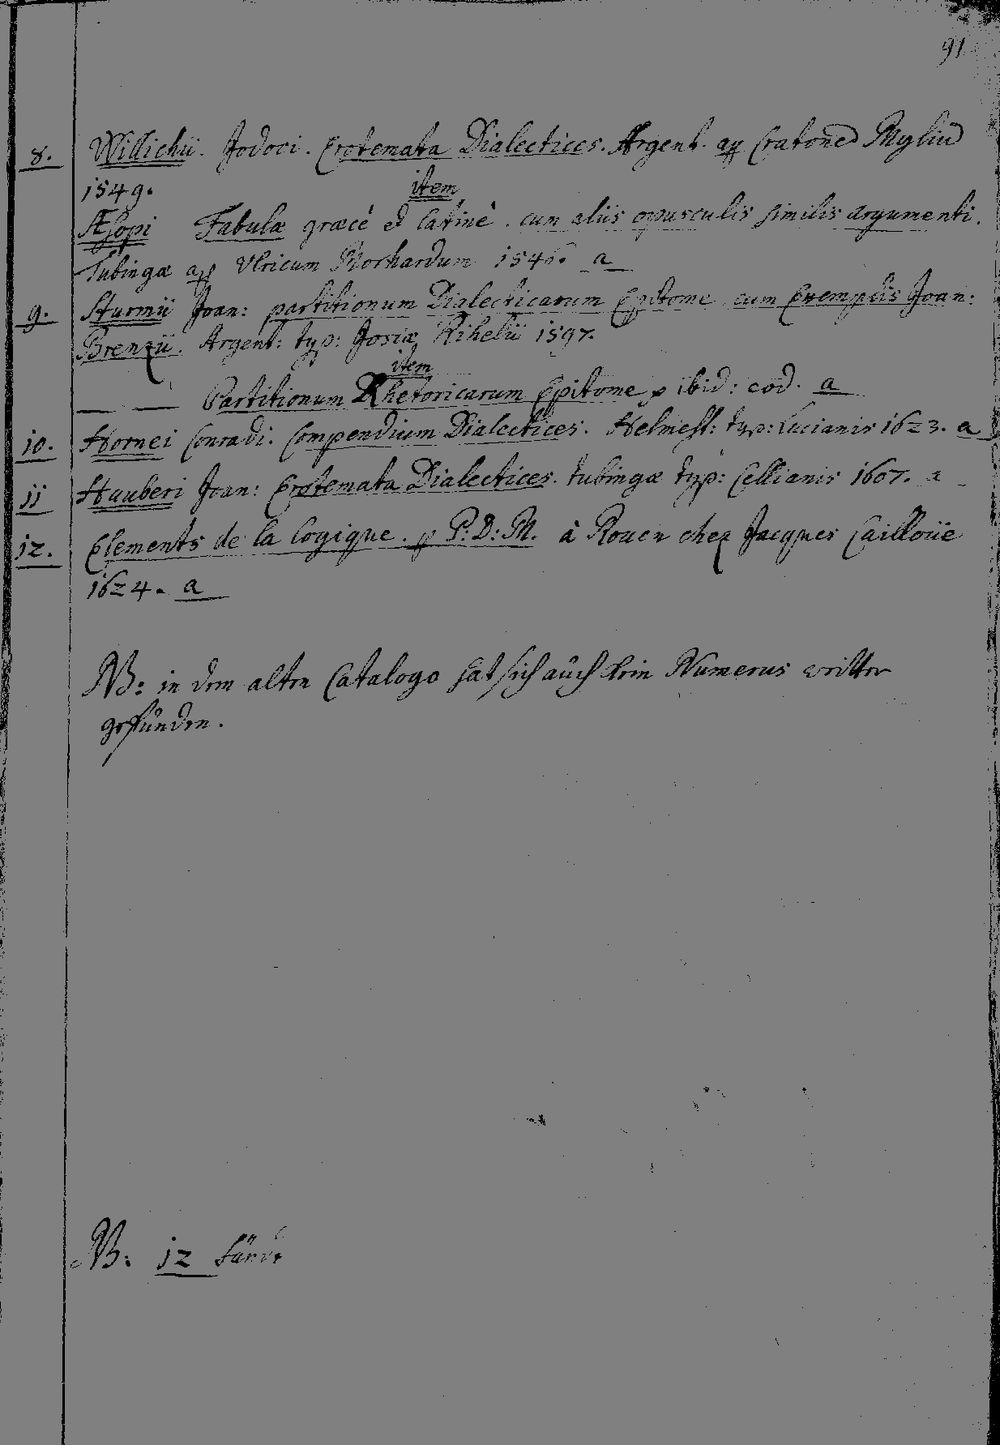 91
8. Willichii. Jodoci. Erotemata Dialectices. Argent. ap Cratoned Myliud
1549.
item
Æsopi Fabulæ græcè et Latinè. cum aliis opusculis similis argumenti.
Tubingæ ap Ulricum Morhardum 1546. a
9. Sturmii Joan: partitionum Dialecticarum Epitome cum Exemplis Joan:
Brenzii. Argent: typ: Josiæ Rihelii 1597.
item
— — Partitionum Rhetoricarum Epitome, ibid: eod. a
10. Hornei Conradi. Compendium Dialectices. Helmest: typ: Lucianis 1623. a
11 Hauberi Joan: Erotemata Dialectices. tubingæ typ: Cellianis 1607. a
12. Elements de la Logique. p P. D: M. à Rouen chez Jacques Cailloüe
1624. a
NB: in dem alten Catalogo hat sich auch kein Numerus weitter
gefunden.
NB: 12